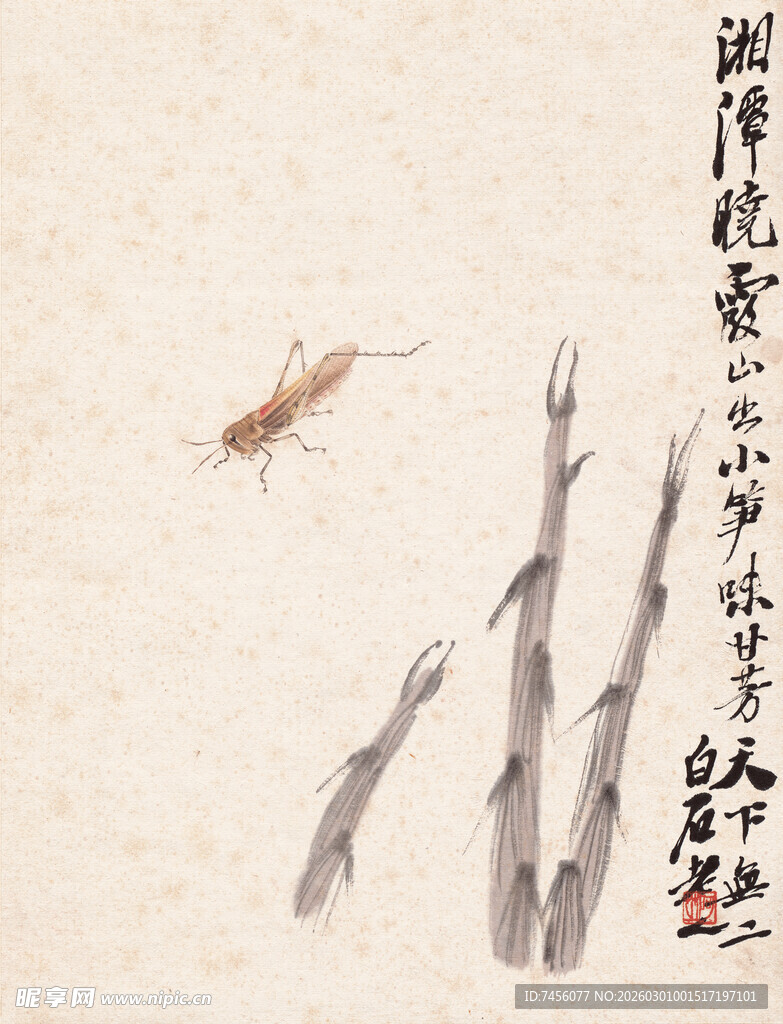 湘潭曉霞山出小笋味甘芳天下無二
白石老人
昵享网 www.nipic.cn
ID:7456077 NO:20260301001517197101